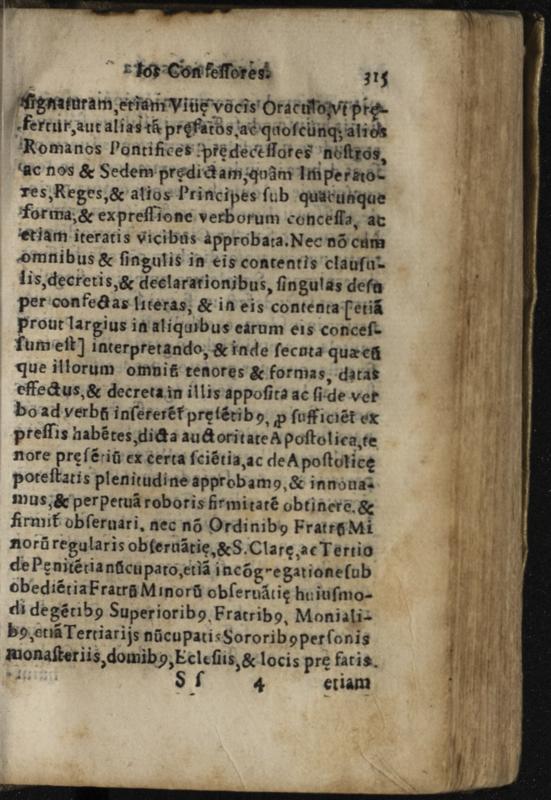 los Confessores. 315
signaturam, etiam Viuę vocis Oraculo, vt prę-
fertur, aut alias tã pręfatos, ac quoscunq; alios
Romanos Pontifices prędecessores nostros,
ac nos & Sedem prędictam, quàm Imperato-
res, Reges, & alios Principes sub quacunque
forma, & expressione verborum concessa, ac
etiam iteratis vicibus approbata. Nec nõ cum
omnibus & singulis in eis contentis clausu-
lis, decretis, & declarationibus, singulas desu
per confectas literas, & in eis contenta [etiã
prout largius in aliquibus earum eis conces-
sum est] interpretando, & inde secuta quæcũ
que illorum omniũ tenores & formas, datas
effectus, & decreta in illis apposita ac si de ver
bo ad verbũ insererẽt pręsẽtib9, ꝓ sufficiẽt ex
pressis habẽtes, dicta auctoritate Apostolica, te
nore pręsẽtiũ ex certa sciẽtia, ac de Apostolicę
potestatis plenitudine approbam9, & innoua-
mus, & perpetuã roboris firmitatẽ obtinere. &
firmit̃ obseruari, nec nõ Ordinib9 Fratrũ Mi
norũ regularis obseruãtię, & S. Clarę, ac Tertio
de Pęnitẽtia nũcupato, etiã incõgregatione sub
obediẽtia Fratrũ Minorũ obseruãtię huiusmo-
di degẽtib9 Superiorib9, Fratrib9, Moniali-
b9, etiã Tertiarijs nũcupatis Sororib9 personis
monasteriis, domib9, Eclesiis, & locis prę fatis.
S s 4 etiam